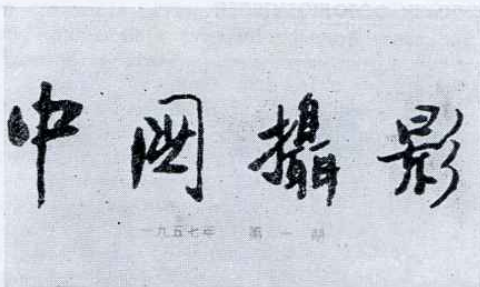 中國攝影
一九五七年 第一期